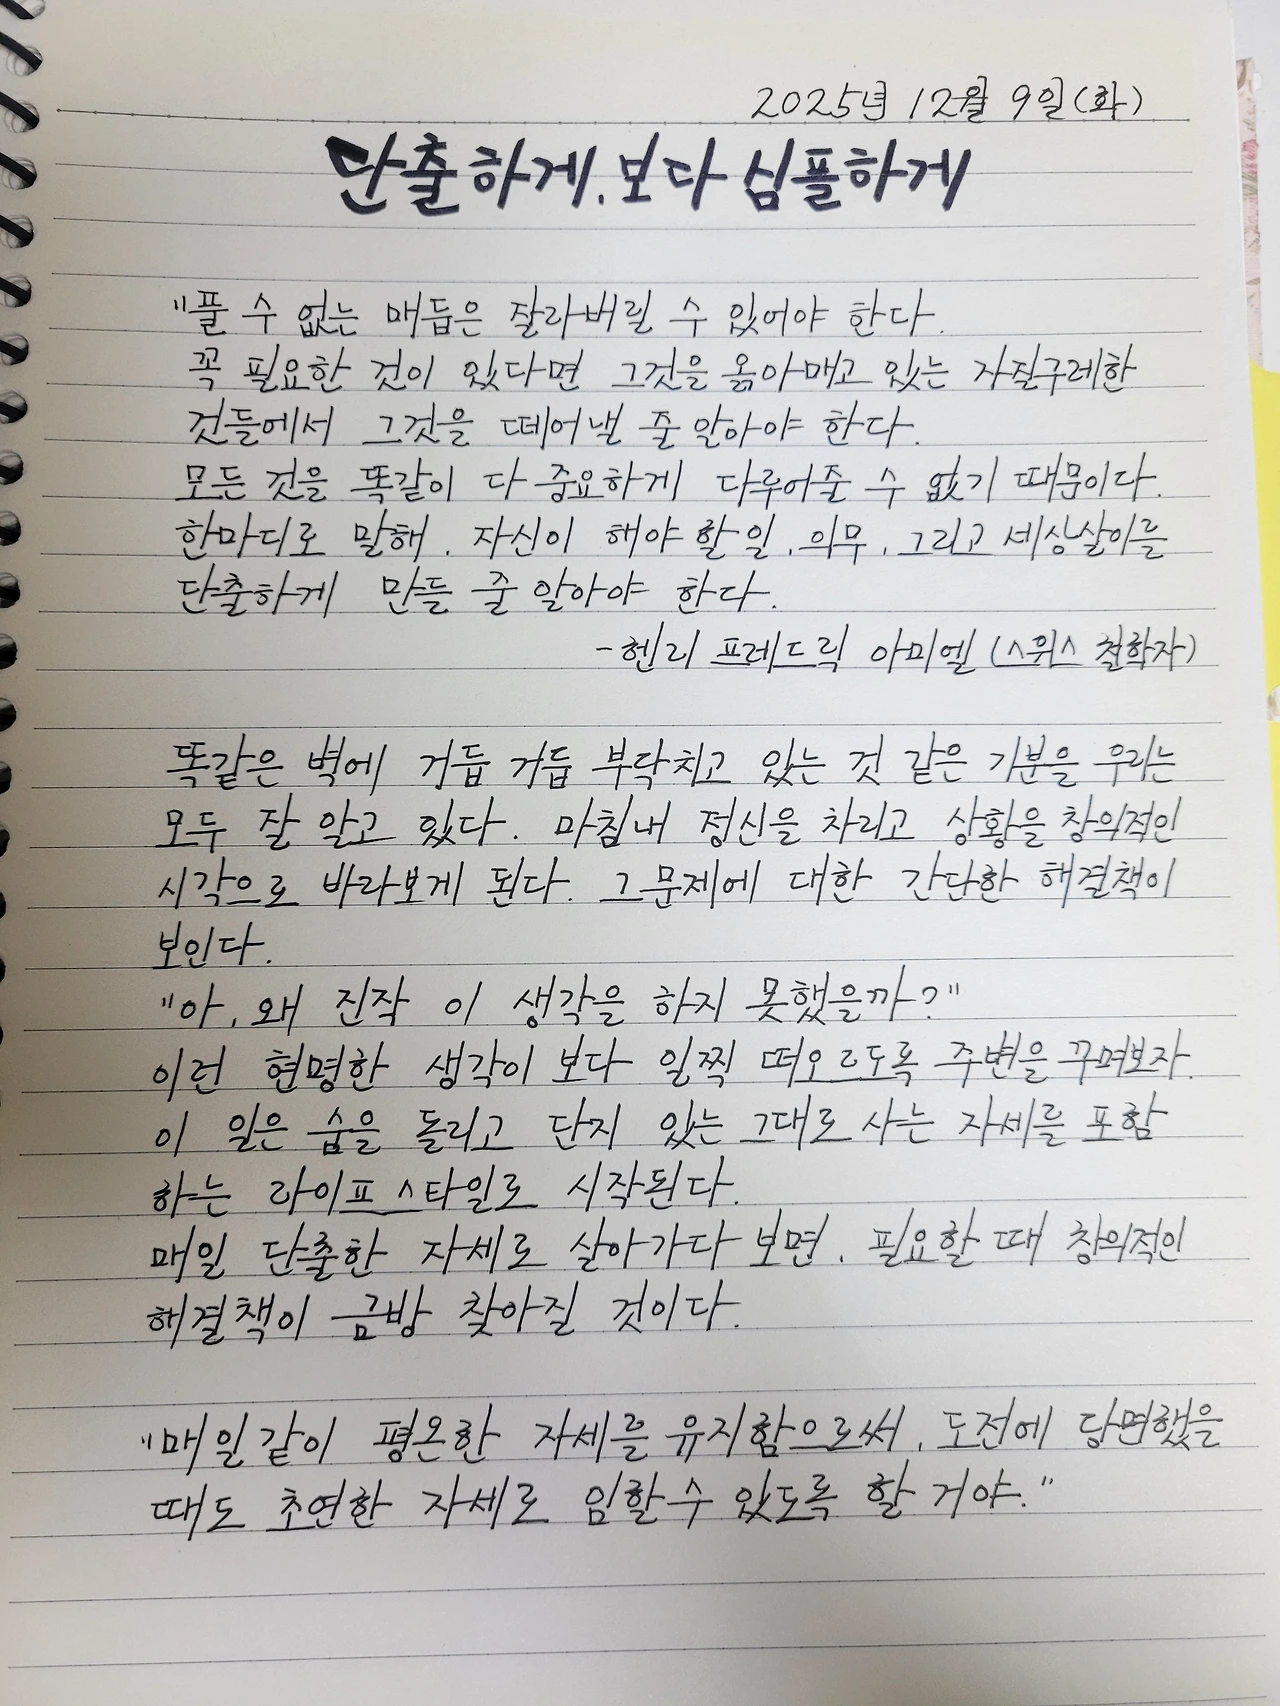 2025년 12월 9일(화)
단출하게, 보다 심플하게
"풀 수 없는 매듭은 잘라버릴 수 있어야 한다.
꼭 필요한 것이 있다면 그것을 옭아매고 있는 자질구레한
것들에서 그것을 떼어낼 줄 알아야 한다.
모든 것을 똑같이 다 중요하게 다루어줄 수 없기 때문이다.
한마디로 말해, 자신이 해야 할 일, 의무, 그리고 세상살이를
단출하게 만들 줄 알아야 한다.
-헨리 프레드릭 아미엘 (스위스 철학자)
똑같은 벽에 거듭 거듭 부닥치고 있는 것 같은 기분을 우리는
모두 잘 알고 있다. 마침내 정신을 차리고 상황을 창의적인
시각으로 바라보게 된다. 그 문제에 대한 간단한 해결책이
보인다.
"아, 왜 진작 이 생각을 하지 못했을까?"
이런 현명한 생각이 보다 일찍 떠오르도록 주변을 꾸며보자.
이 일은 숨을 돌리고 단지 있는 그대로 사는 자세를 포함
하는 라이프스타일로 시작된다.
매일 단출한 자세로 살아가다 보면, 필요할 때 창의적인
해결책이 금방 찾아질 것이다.
"매일같이 평온한 자세를 유지함으로써, 도전에 당면했을
때도 초연한 자세로 임할 수 있도록 할 거야."